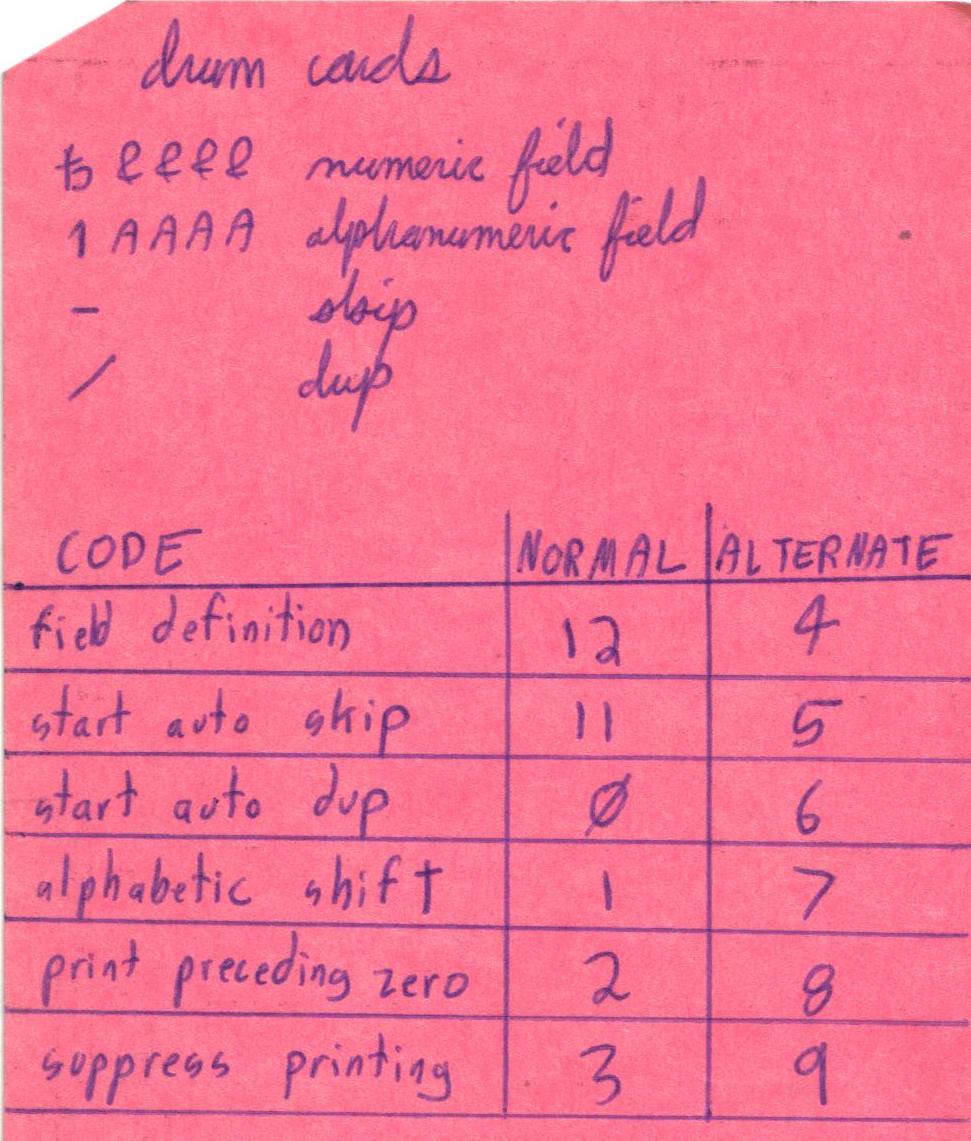 drum cards
ƀ &&&& numeric field
1 AAAA alphanumeric field
- skip
/ dup
CODE NORMAL ALTERNATE
field definition 12 4
start auto skip 11 5
start auto dup 0 6
alphabetic shift 1 7
print preceding zero 2 8
suppress printing 3 9